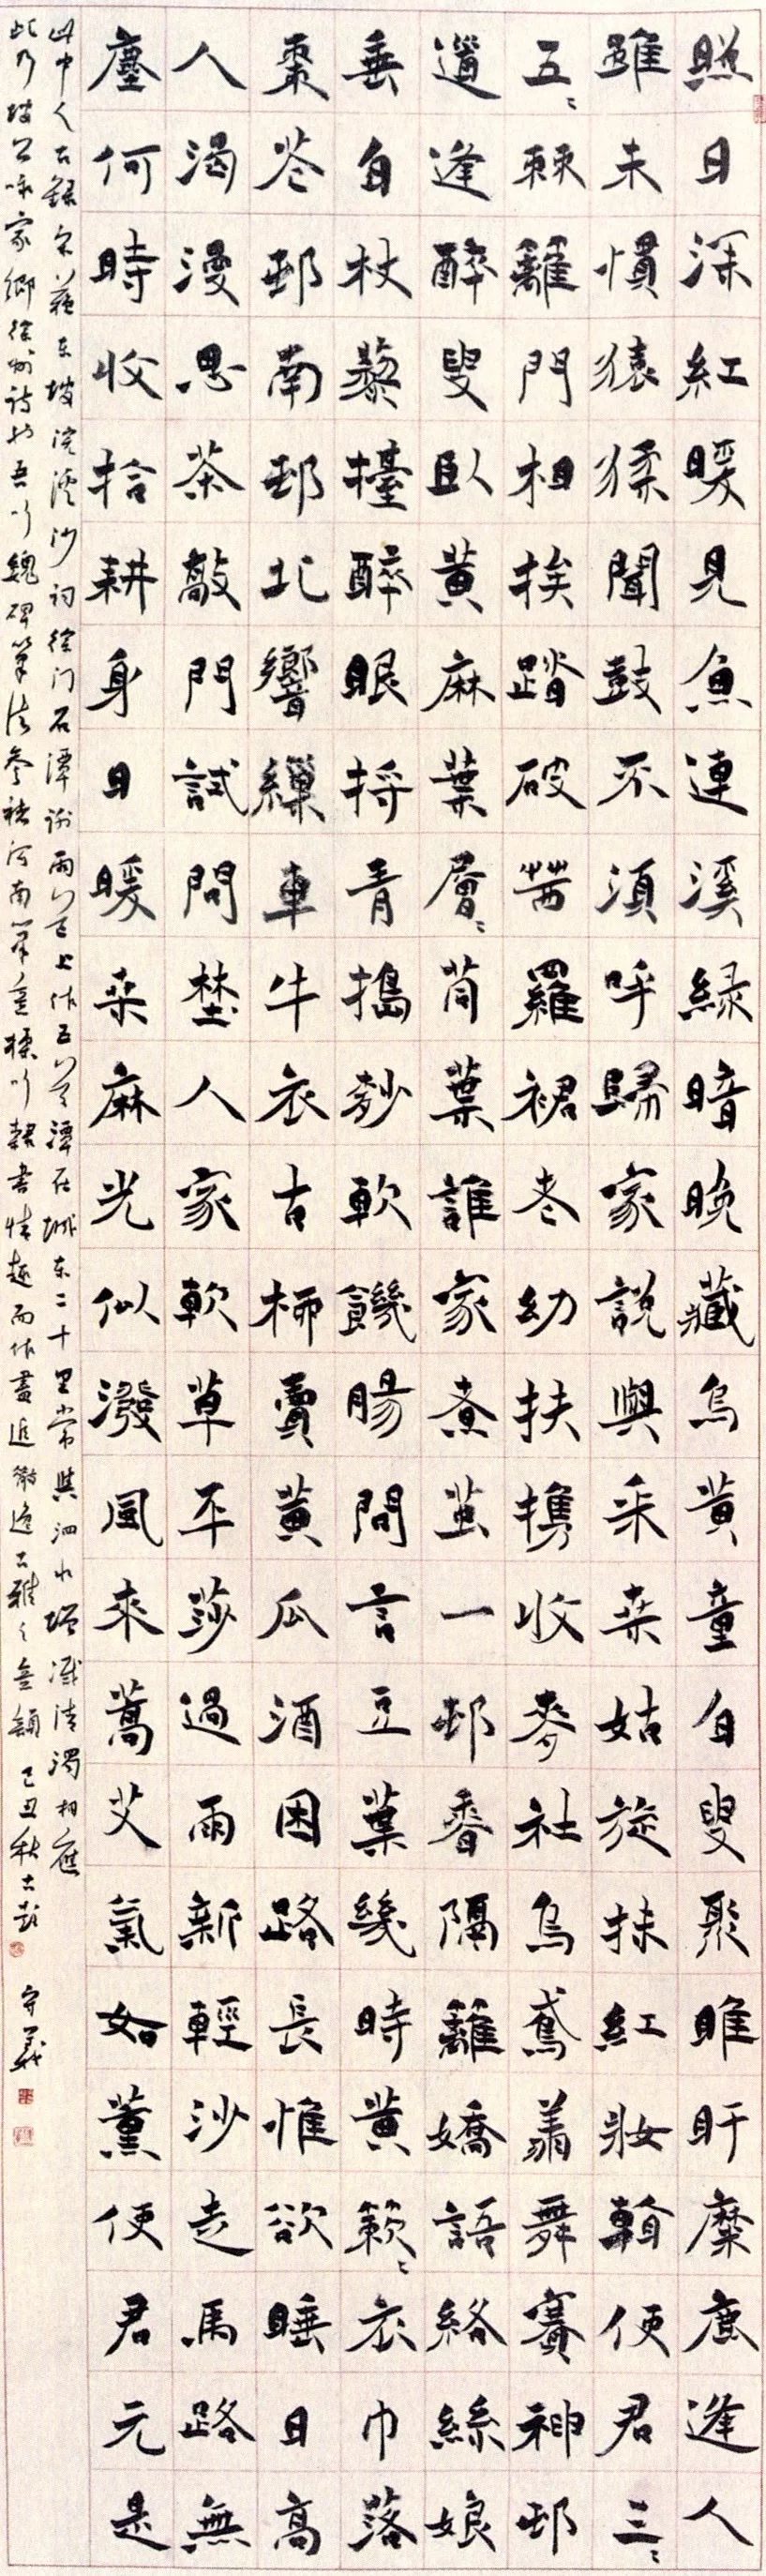 照日深紅暖見魚連溪緑暗晚藏烏黄童白叟聚睢盱麋鹿逢人
雖未慣猿猱聞鼓不須呼歸家說與采桑姑旋抹紅妝看使君三〻
五〻棘籬門相挨踏破茜羅裙老幼扶攜收麥社烏鳶翔舞賽神邨
道逢醉叟臥黄麻葉層〻苘葉誰家煮繭一邨香隔籬嬌語絡絲娘
垂白杖藜擡醉眼捋青搗麨軟饑腸問言豆葉幾時黄簌〻衣巾落
棗花邨南邨北響繅車牛衣古柳賣黄瓜酒困路長惟欲睡日高
人渴漫思茶敲門試問埜人家軟草平莎過雨新輕沙走馬路無
塵何時收拾耕身日暖桑麻光似潑風來蒿艾氣如薰使君元是
此中人右録宋蘇東坡浣溪沙詞徐门石潭謝雨道上作五首潭在城東二十里常與泗水增減清濁相應
此乃坡公咏家鄉徐州詩也吾以魏碑筆法參褚河南筆意揉以隸書情趣而作 己丑秋 守義